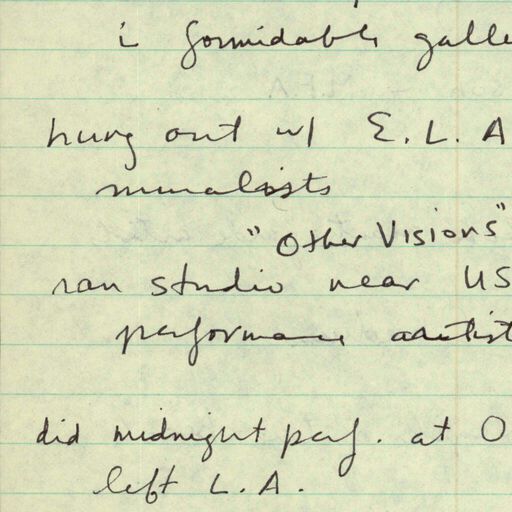 i formidable galle
hung out w/ E.L.A
muralists
"Other Visions"
ran studio near US
performance artist
did midnight perf. at O
left L.A.